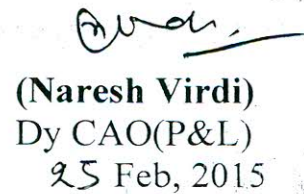 (Naresh Virdi)
Dy CAO(P&L)
25 Feb, 2015